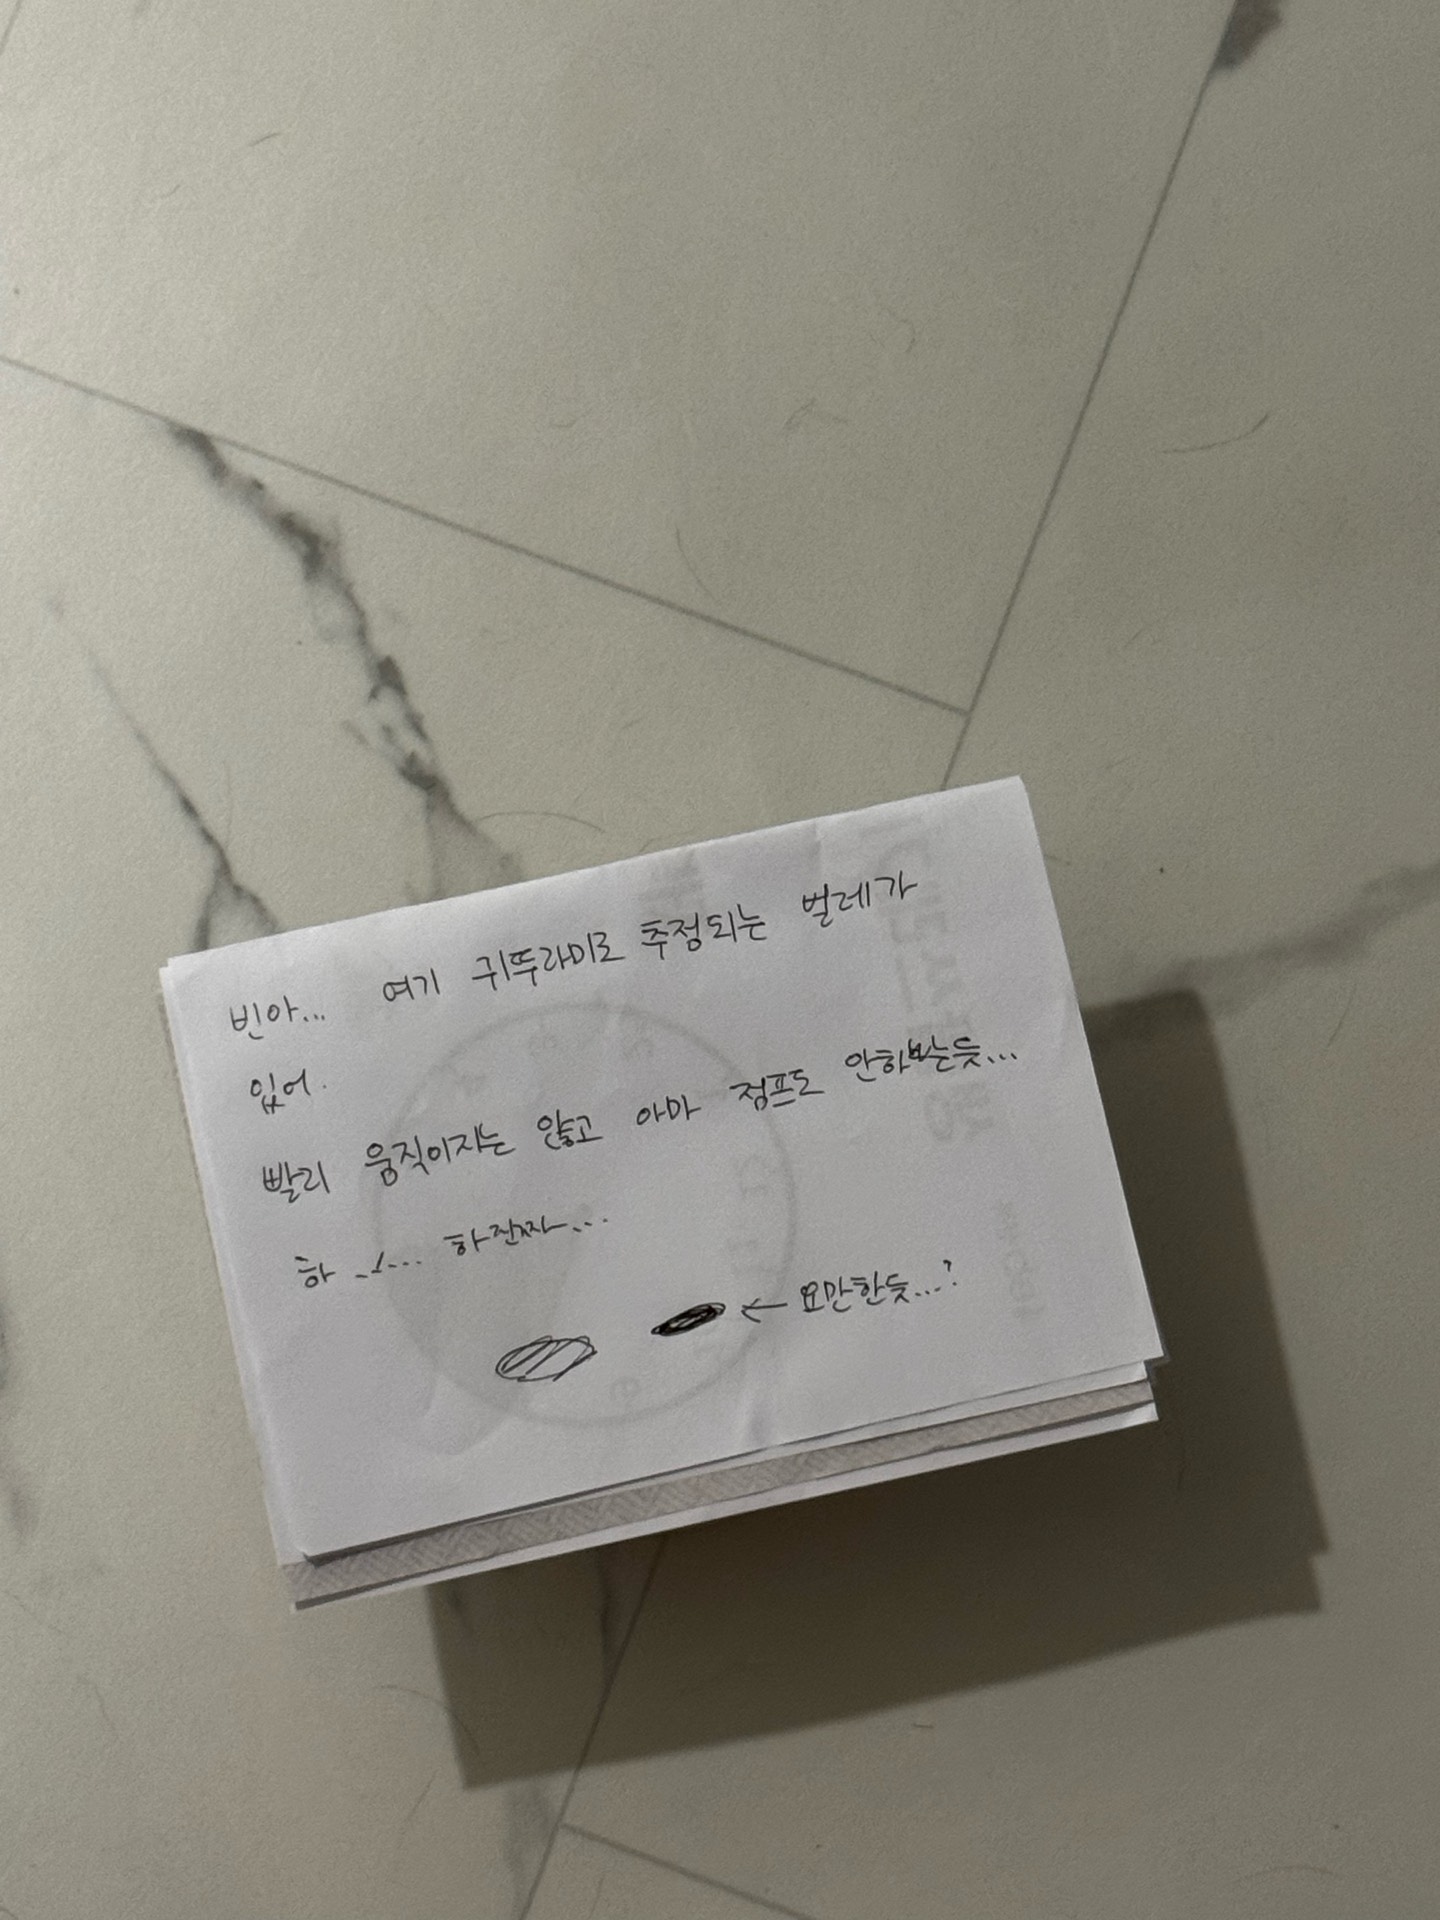 빈아... 여기 귀뚜라미로 추정되는 벌레가
있어.
빨리 움직이지는 않고 아마 점프도 안하는듯...
하 ... 하진짜...
← 요만한듯...?